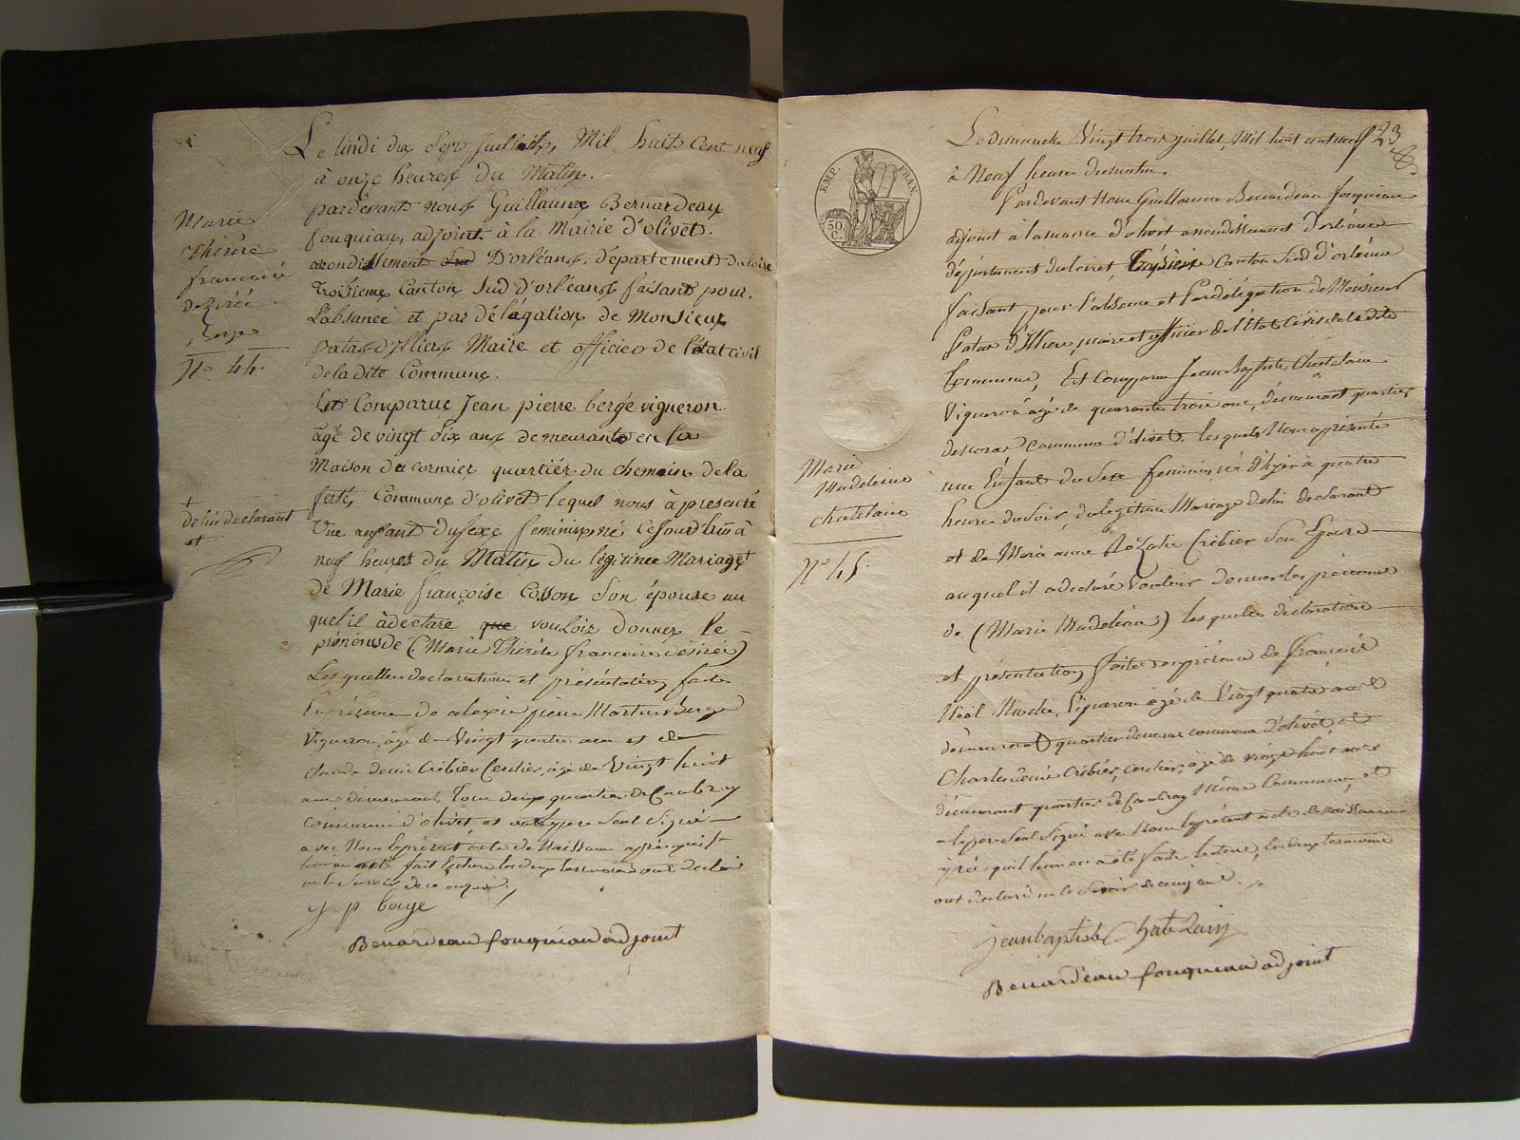 Le lundi dix Sept Juillet, Mil huit Cent neuf
à onze heures du Matin.
pardevant nous Guillaume Benardeau
fouquiau, adjoint à la Mairie d'olivet.
arondissement D'orléans, département du loiret
Troisieme Canton Sud d'orléans faisant pour
L'absance et par délégation de Monsieur
patas d'Illiers Maire et officier de l'état civil
de la dite Commune.
Est Comparue Jean pierre bergé vigneron
âgé de vingt dix ans demeurant en la
Maison du cormier quartier du chemin de la
ferté, Commune d'olivet lequel nous à presenté
Une anfant du sexe feminin, né Ce jourd'hui à
neuf heures du Matin du légitime Mariage
de Marie françoise Cosson Son épouse au
quel il à déclaré que vouloir donner le
prénoms de (Marie Thérèse françoise désirée)
Les quelles déclaration et présentation, faite
En présence de pierre Martin Berge
Vigneron, âgé de Vingt quatre ans et de
denis Cribier Cerclier, âgé de Vingt huit
ans demeurant Tous deux quartier de Coubray
Commune d'olivet, et le pere Seul Signé
avec Nous le présent acte de Naissance après qu'il
leur en a été fait lecture les deux témoins ont déclaré
ne le Savoir de ce enquis,
j p berge
Benardeau fouquiau adjoint
Marie
Thérèse
françoise
dézirée
Berge
No. 44.
+
de lui declarant
et
23
Le dimanche Vingt trois juillet, Mil huit cent neuf
à Neuf heures du matin.
Pardevant Nous Guillaume Benardeau fouquiau
adjoint à la mairie d'olivet arrondissement d'orléans
département du loiret, Troisieme Canton Sud d'orléans
faisant pour l'absence et Par délégation de Monsieur
Patas d'Illiers, maire et officier de l'état Civil de la dite
Commune, Est Comparu Jean Baptiste Chatelain
Vigneron âgé de quarante trois ans, demeurant quartier
Commune d'olivet, lequel Nous a présenté
une Enfant du Sexe feminin, né d'hyer à quatre
heures du Soir, du légitime Mariage de lui déclarant
et de Marie anne Rozalie Cribier Son Epouse
auquel il a déclaré Vouloir donner les prénoms
de (Marie Madeleine) les quelles déclaration
et présentation, faites en présence de françois
Noël vigneron âgé de Vingt quatre ans
demeurant quartier commune d'olivet, et
Charles denis Cribier, cerclier, âgé de vingt huit ans
demeurant quartier de Coubray Même Commune, et
le pere Seul Signé avec Nous le présent acte de naissance
après qu'il leur en a été fait lecture, les deux témoins
ont déclaré ne le Savoir de ce enquis.
jean baptiste Chatelain
Benardeau fouquiau adjoint
EMP. FRAN.
50
C.
Marie
Madeleine
Chatelain
No. 45.